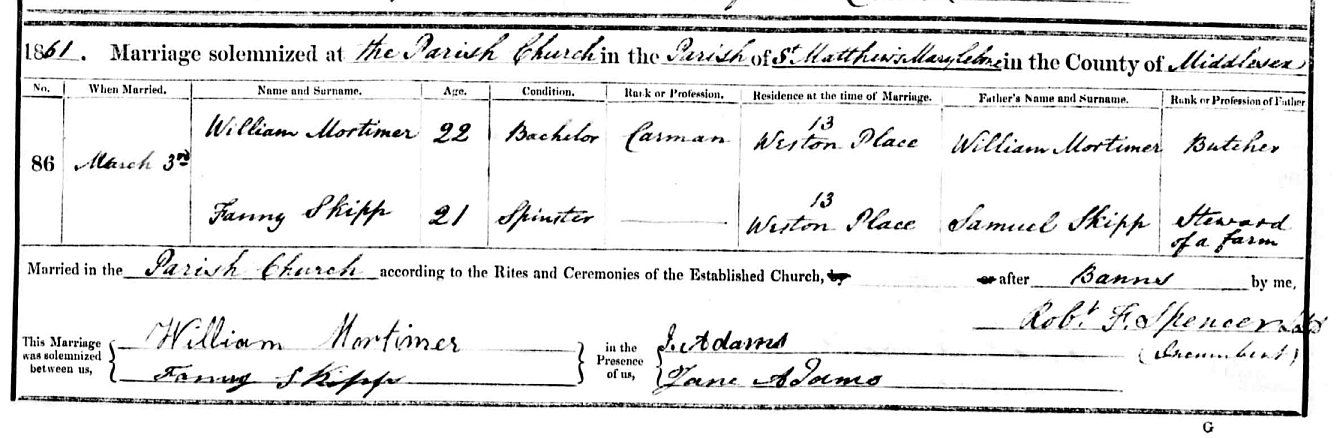 1861. Marriage solemnized at the Parish Church in the Parish of St Matthews Marylebone in the County of Middlesex
No. When Married. Name and Surname. Age. Condition. Rank or Profession. Residence at the time of Marriage. Father's Name and Surname. Rank or Profession of Father
13
William Mortimer 22 Bachelor Carman Weston Place William Mortimer Butcher
86 March 3rd
13
Fanny Skipp 21 Spinster Weston Place Samuel Skipp Steward
of a farm
Married in the Parish Church according to the Rites and Ceremonies of the Established Church, by or after Banns by me,
Robt. F. Spencer
(Incumbent)
This Marriage was solemnized between us, William Mortimer in the Presence of us, J. Adams
Fanny Skipp Jane Adams
G